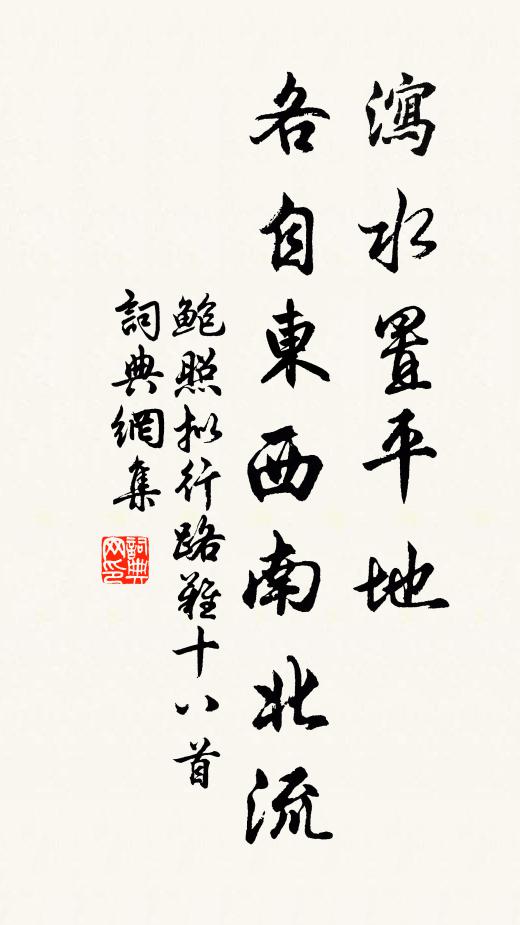 瀉水置平地
各自東西南北流
鮑照拟行路難十八首
詞典網集
詞典網印